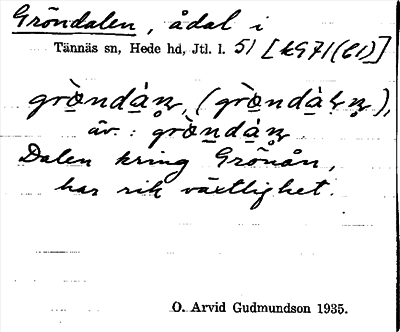 Gröndalen, ådal i
Tännäs sn, Hede hd, Jtl. l. 51 [kG71(61)]
äv.:
Dalen kring Grönån,
har rik växtlighet.
O. Arvid Gudmundson 1935.